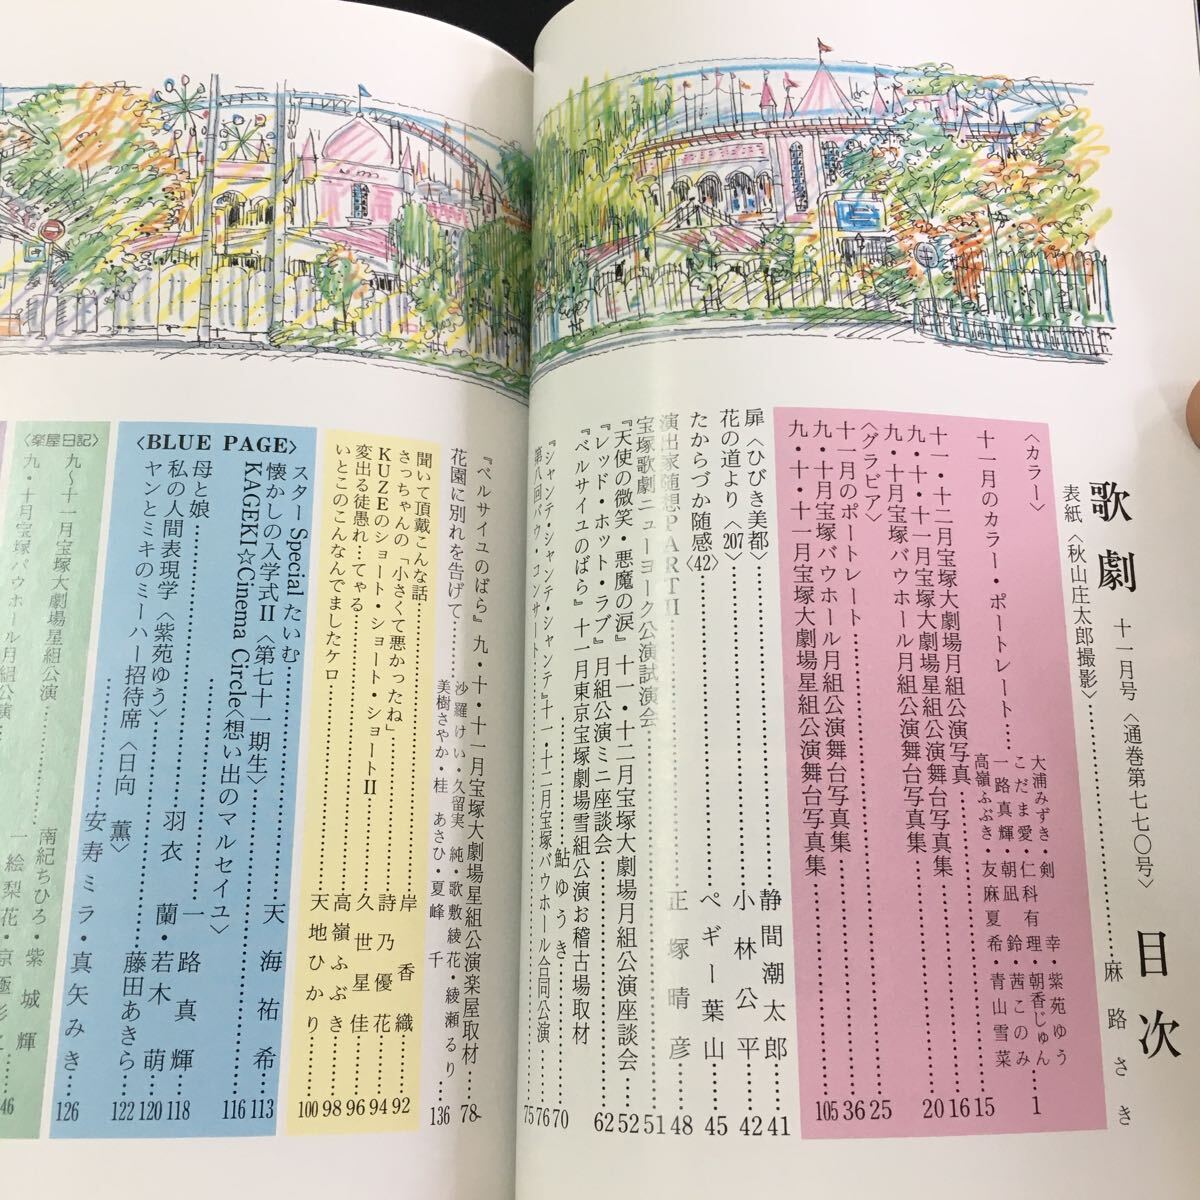 歌劇 十一月号〈通巻第七七〇号〉 目次
表紙〈秋山庄太郎撮影〉……麻路さき
〈カラー〉
十一月のカラー・ポートレート……大浦みずき・剣 幸・紫苑ゆう
こだま愛・仁科有理・朝香じゅん
一路真輝・朝凪 鈴・茜このみ
高嶺ふぶき・友麻夏希・青山雪菜 1
十一・十二月宝塚大劇場月組公演写真……15
九・十・十一月宝塚大劇場星組公演舞台写真集……16
九・十月宝塚バウホール月組公演……20
〈グラビア〉
十一月のポートレート……25
九・十月宝塚バウホール月組公演舞台写真集……36
九・十・十一月宝塚大劇場星組公演舞台写真集……105
扉〈ひびき美都〉……静間潮太郎 41
花の道より〈207〉……小林公平 42
たからづか随感〈42〉……ペギー葉山 45
演出家随想PARTⅡ……正塚晴彦 48
宝塚歌劇ニューヨーク公演試演会……51
『天使の微笑・悪魔の涙』十一・十二月宝塚大劇場月組公演座談会……52
『レッド・ホット・ラブ』月組公演ミニ座談会……62
『ベルサイユのばら』十一月東京宝塚劇場雪組公演お稽古場取材
……鮎ゆうき……70
『シャンテ・シャンテ・シャンテ』十一・十二月宝塚バウホール合同公演……76
第八回バウ・コンサート……75
『ベルサイユのばら』九・十・十一月宝塚大劇場星組公演楽屋取材……78
花園に別れを告げて……沙羅けい・久留実 純・歌敷綾花・綾瀬るり
美樹さやか・桂 あさひ・夏峰 千 136
聞いて頂戴こんな話……岸 香織……92
さっちゃんの「小さくて悪かったね」……詩乃優花……94
KUZEのショート・ショート・ショートⅡ……久世星佳……96
変出る徒愚れ…てゃる……高嶺ふぶき……98
いとこのこんなんでましたケロ……天地ひかり……100
〈BLUE PAGE〉
スターSpecialたいむ……天海祐希……113
懐かしの入学式Ⅱ〈第七十一期生〉……116
KAGEKI☆Cinema Circle〈想い出のマルセイユ〉
……一路真輝……118
母と娘……羽衣 蘭・若木 萌 120
私の人間表現学〈紫苑ゆう〉……藤田あきら……122
ヤンとミキのミーハー招待席〈日向 薫〉
……安寿ミラ・真矢みき……126
〈楽屋日記〉
九〜十一月宝塚大劇場星組公演……南紀ちひろ・紫城 輝
九・十月宝塚バウホール月組公演……一絵梨花・京極